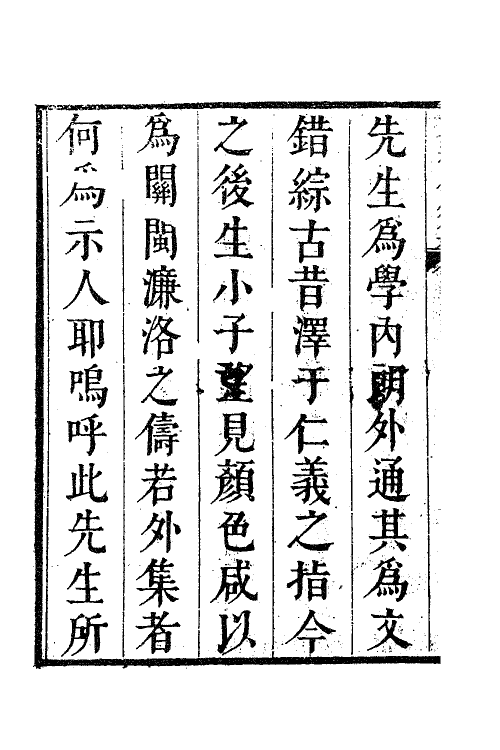 先生爲學內明外通其爲文
錯綜古昔澤于仁義之指今
之後生小子望見顏色咸以
爲關閩濂洛之儔若外集者
何爲示人耶嗚呼此先生所